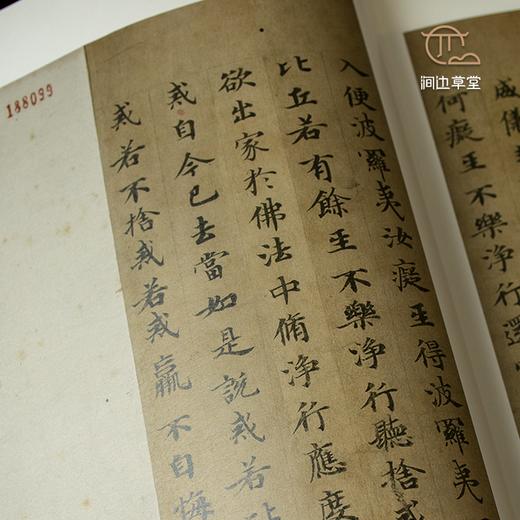 涧边草堂
188099
威儀
何癡𤯔不樂淨行還
入便波羅夷汝癡𤯔得波羅夷
比丘若有餘𤯔不樂淨行聽捨戒
欲出家於佛法中脩淨行應度
戒自今已去當如是說戒若
戒若不捨戒若戒羸不自悔